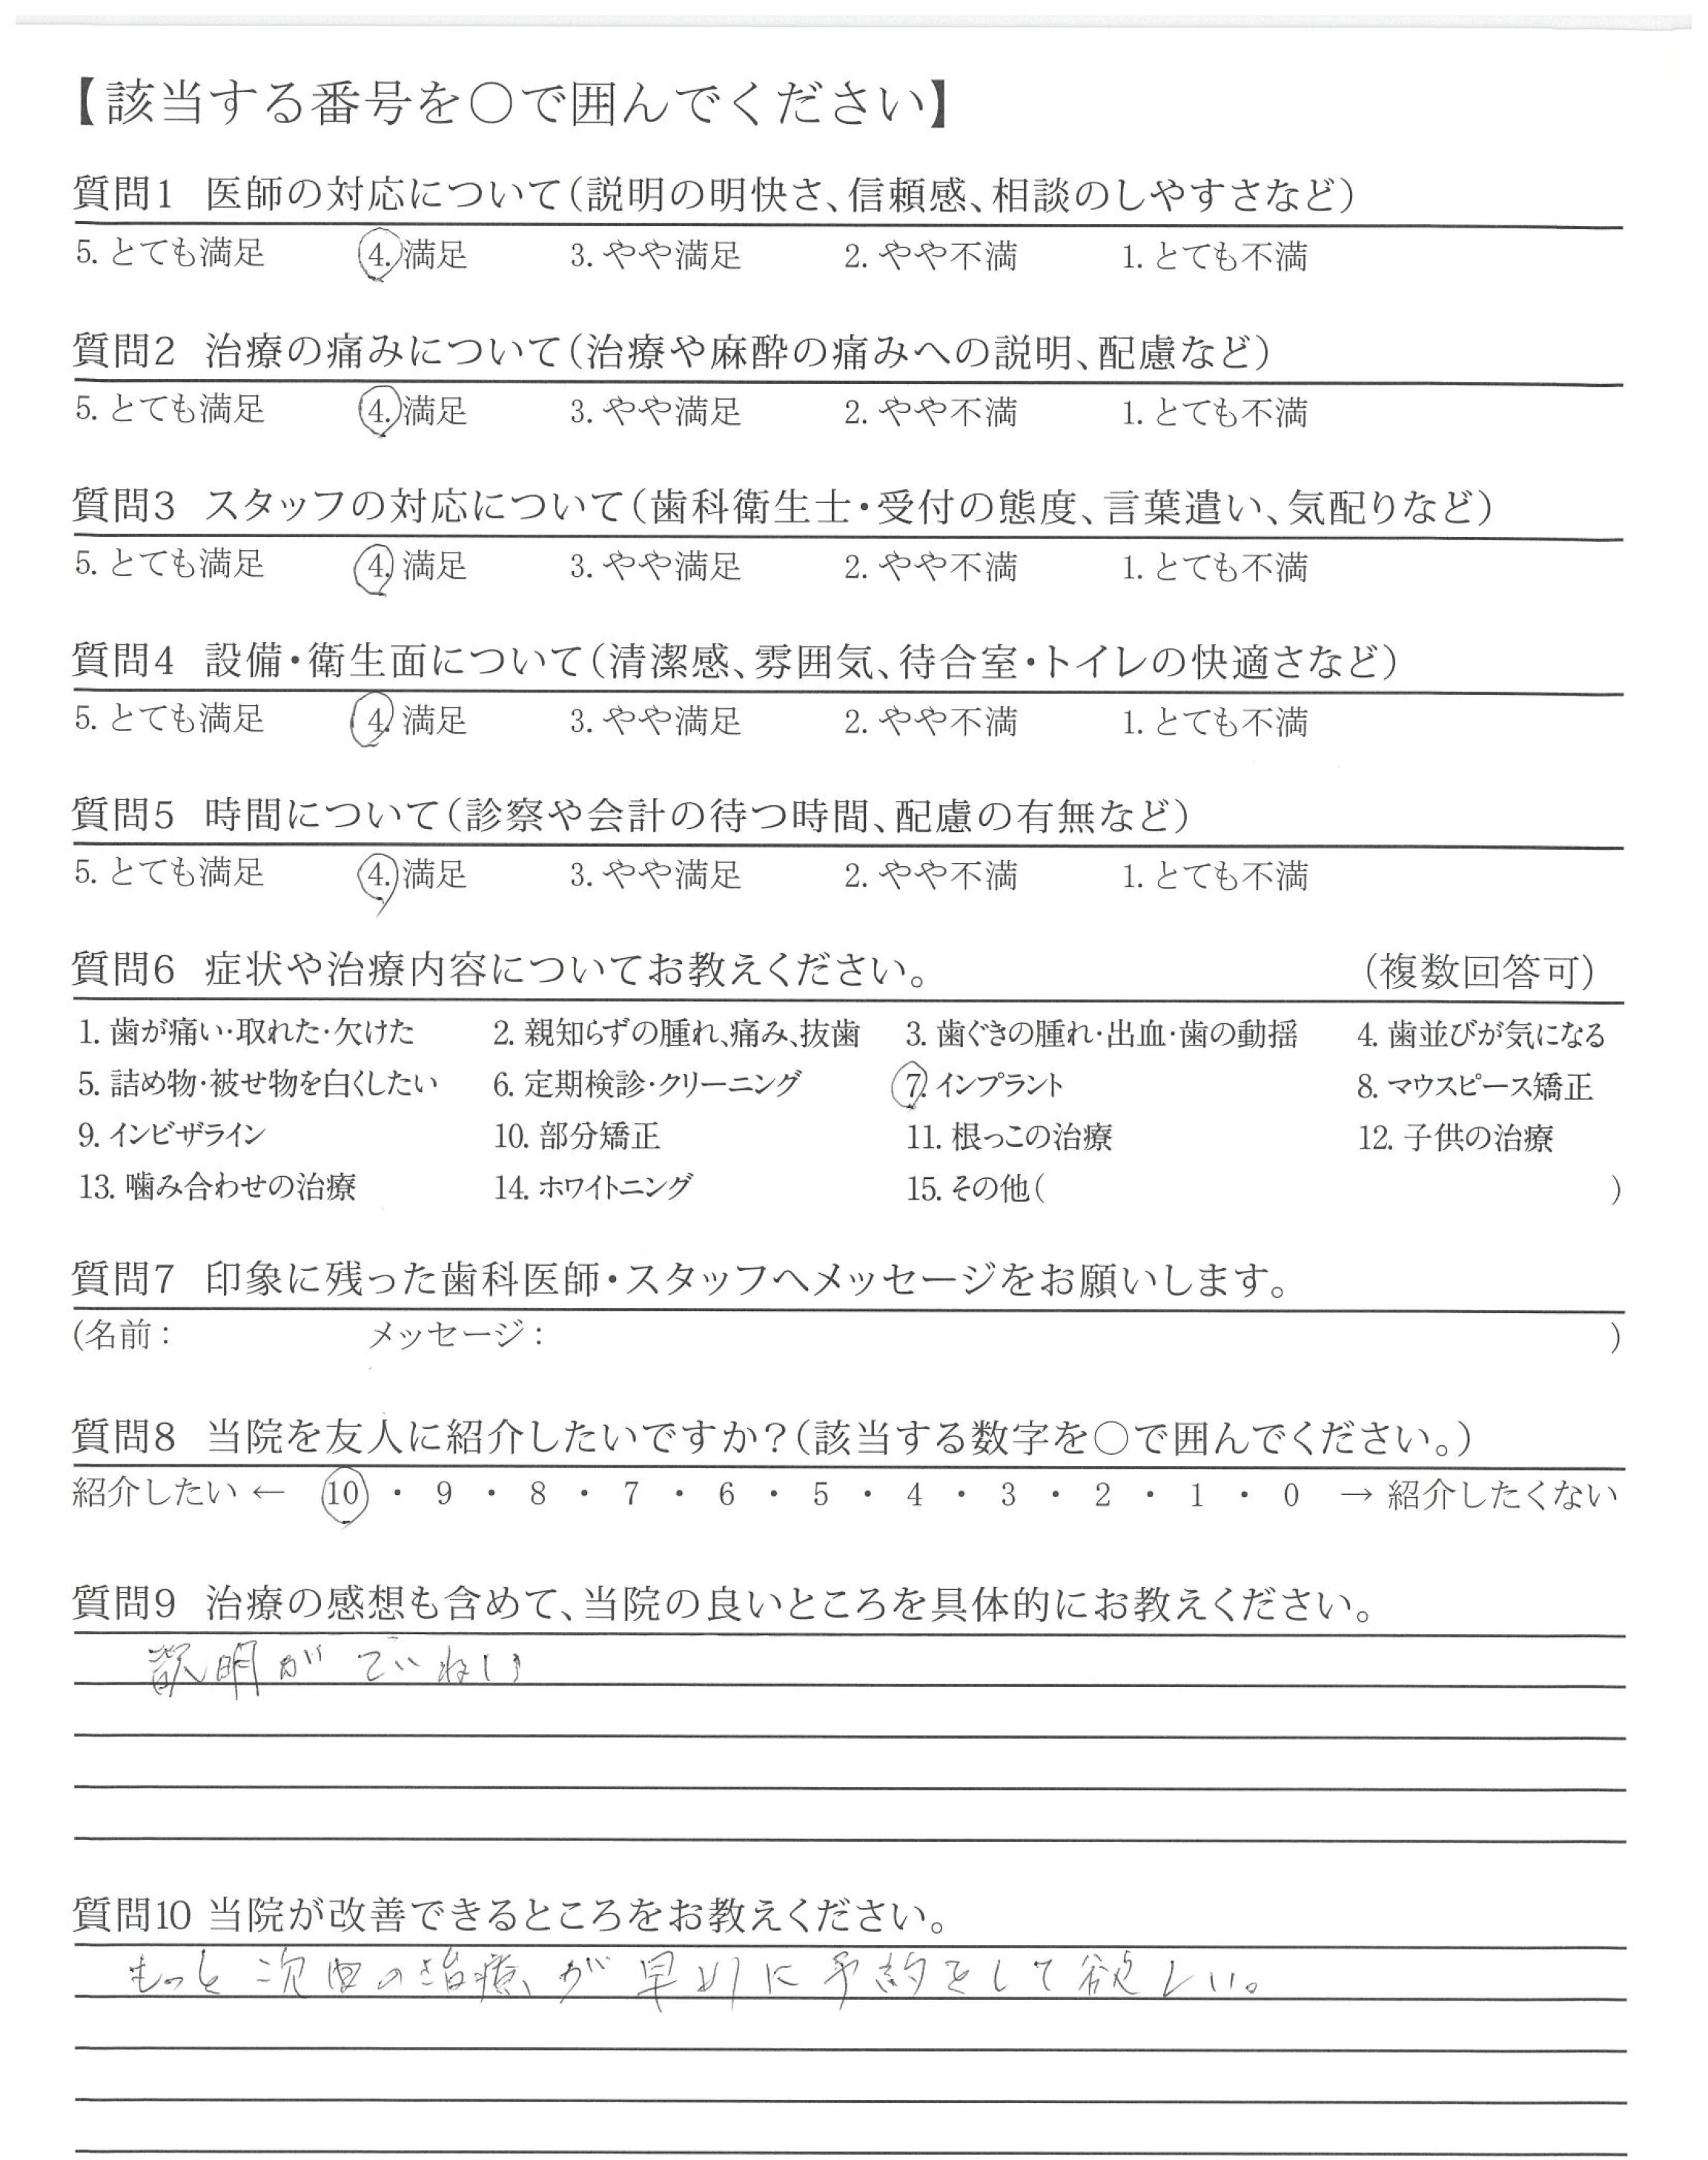 【該当する番号を○で囲んでください】
質問1 医師の対応について(説明の明快さ、信頼感、相談のしやすさなど)
5. とても満足 4. 満足 3. やや満足 2. やや不満 1. とても不満
質問2 治療の痛みについて(治療や麻酔の痛みへの説明、配慮など)
5. とても満足 4. 満足 3. やや満足 2. やや不満 1. とても不満
質問3 スタッフの対応について(歯科衛生士・受付の態度、言葉遣い、気配りなど)
5. とても満足 4. 満足 3. やや満足 2. やや不満 1. とても不満
質問4 設備・衛生面について(清潔感、雰囲気、待合室・トイレの快適さなど)
5. とても満足 4. 満足 3. やや満足 2. やや不満 1. とても不満
質問5 時間について(診察や会計の待つ時間、配慮の有無など)
5. とても満足 4. 満足 3. やや満足 2. やや不満 1. とても不満
質問6 症状や治療内容についてお教えください。 (複数回答可)
1. 歯が痛い・取れた・欠けた 2. 親知らずの腫れ、痛み、抜歯 3. 歯ぐきの腫れ・出血・歯の動揺 4. 歯並びが気になる
5. 詰め物・被せ物を白くしたい 6. 定期検診・クリーニング 7. インプラント 8. マウスピース矯正
9. インビザライン 10. 部分矯正 11. 根っこの治療 12. 子供の治療
13. 噛み合わせの治療 14. ホワイトニング 15. その他( )
質問7 印象に残った歯科医師・スタッフへメッセージをお願いします。
(名前: メッセージ: )
質問8 当院を友人に紹介したいですか?(該当する数字を○で囲んでください。)
紹介したい ← 10 ・ 9 ・ 8 ・ 7 ・ 6 ・ 5 ・ 4 ・ 3 ・ 2 ・ 1 ・ 0 → 紹介したくない
質問9 治療の感想も含めて、当院の良いところを具体的にお教えください。
説明がていねい
質問10 当院が改善できるところをお教えください。
もっと次回の治療が早めに予約をして欲しい。